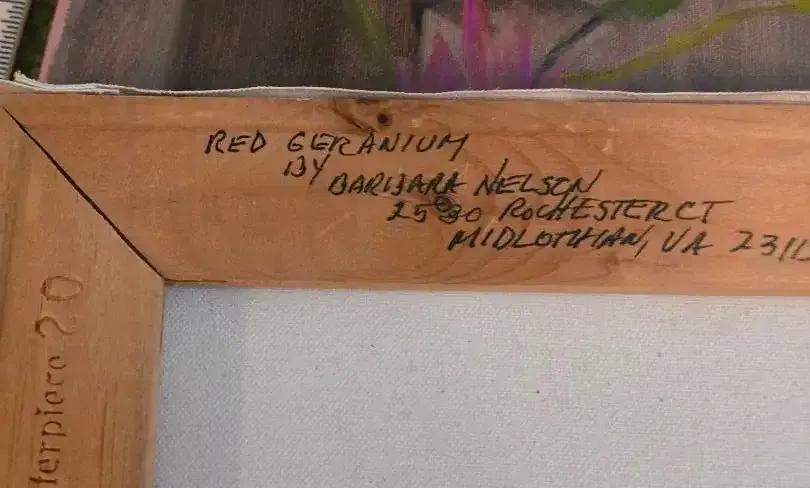 RED GERANIUM
BY
BARBARA NELSON
2530 ROCHESTER CT
MIDLOTHIAN, VA
terpiece 2.0